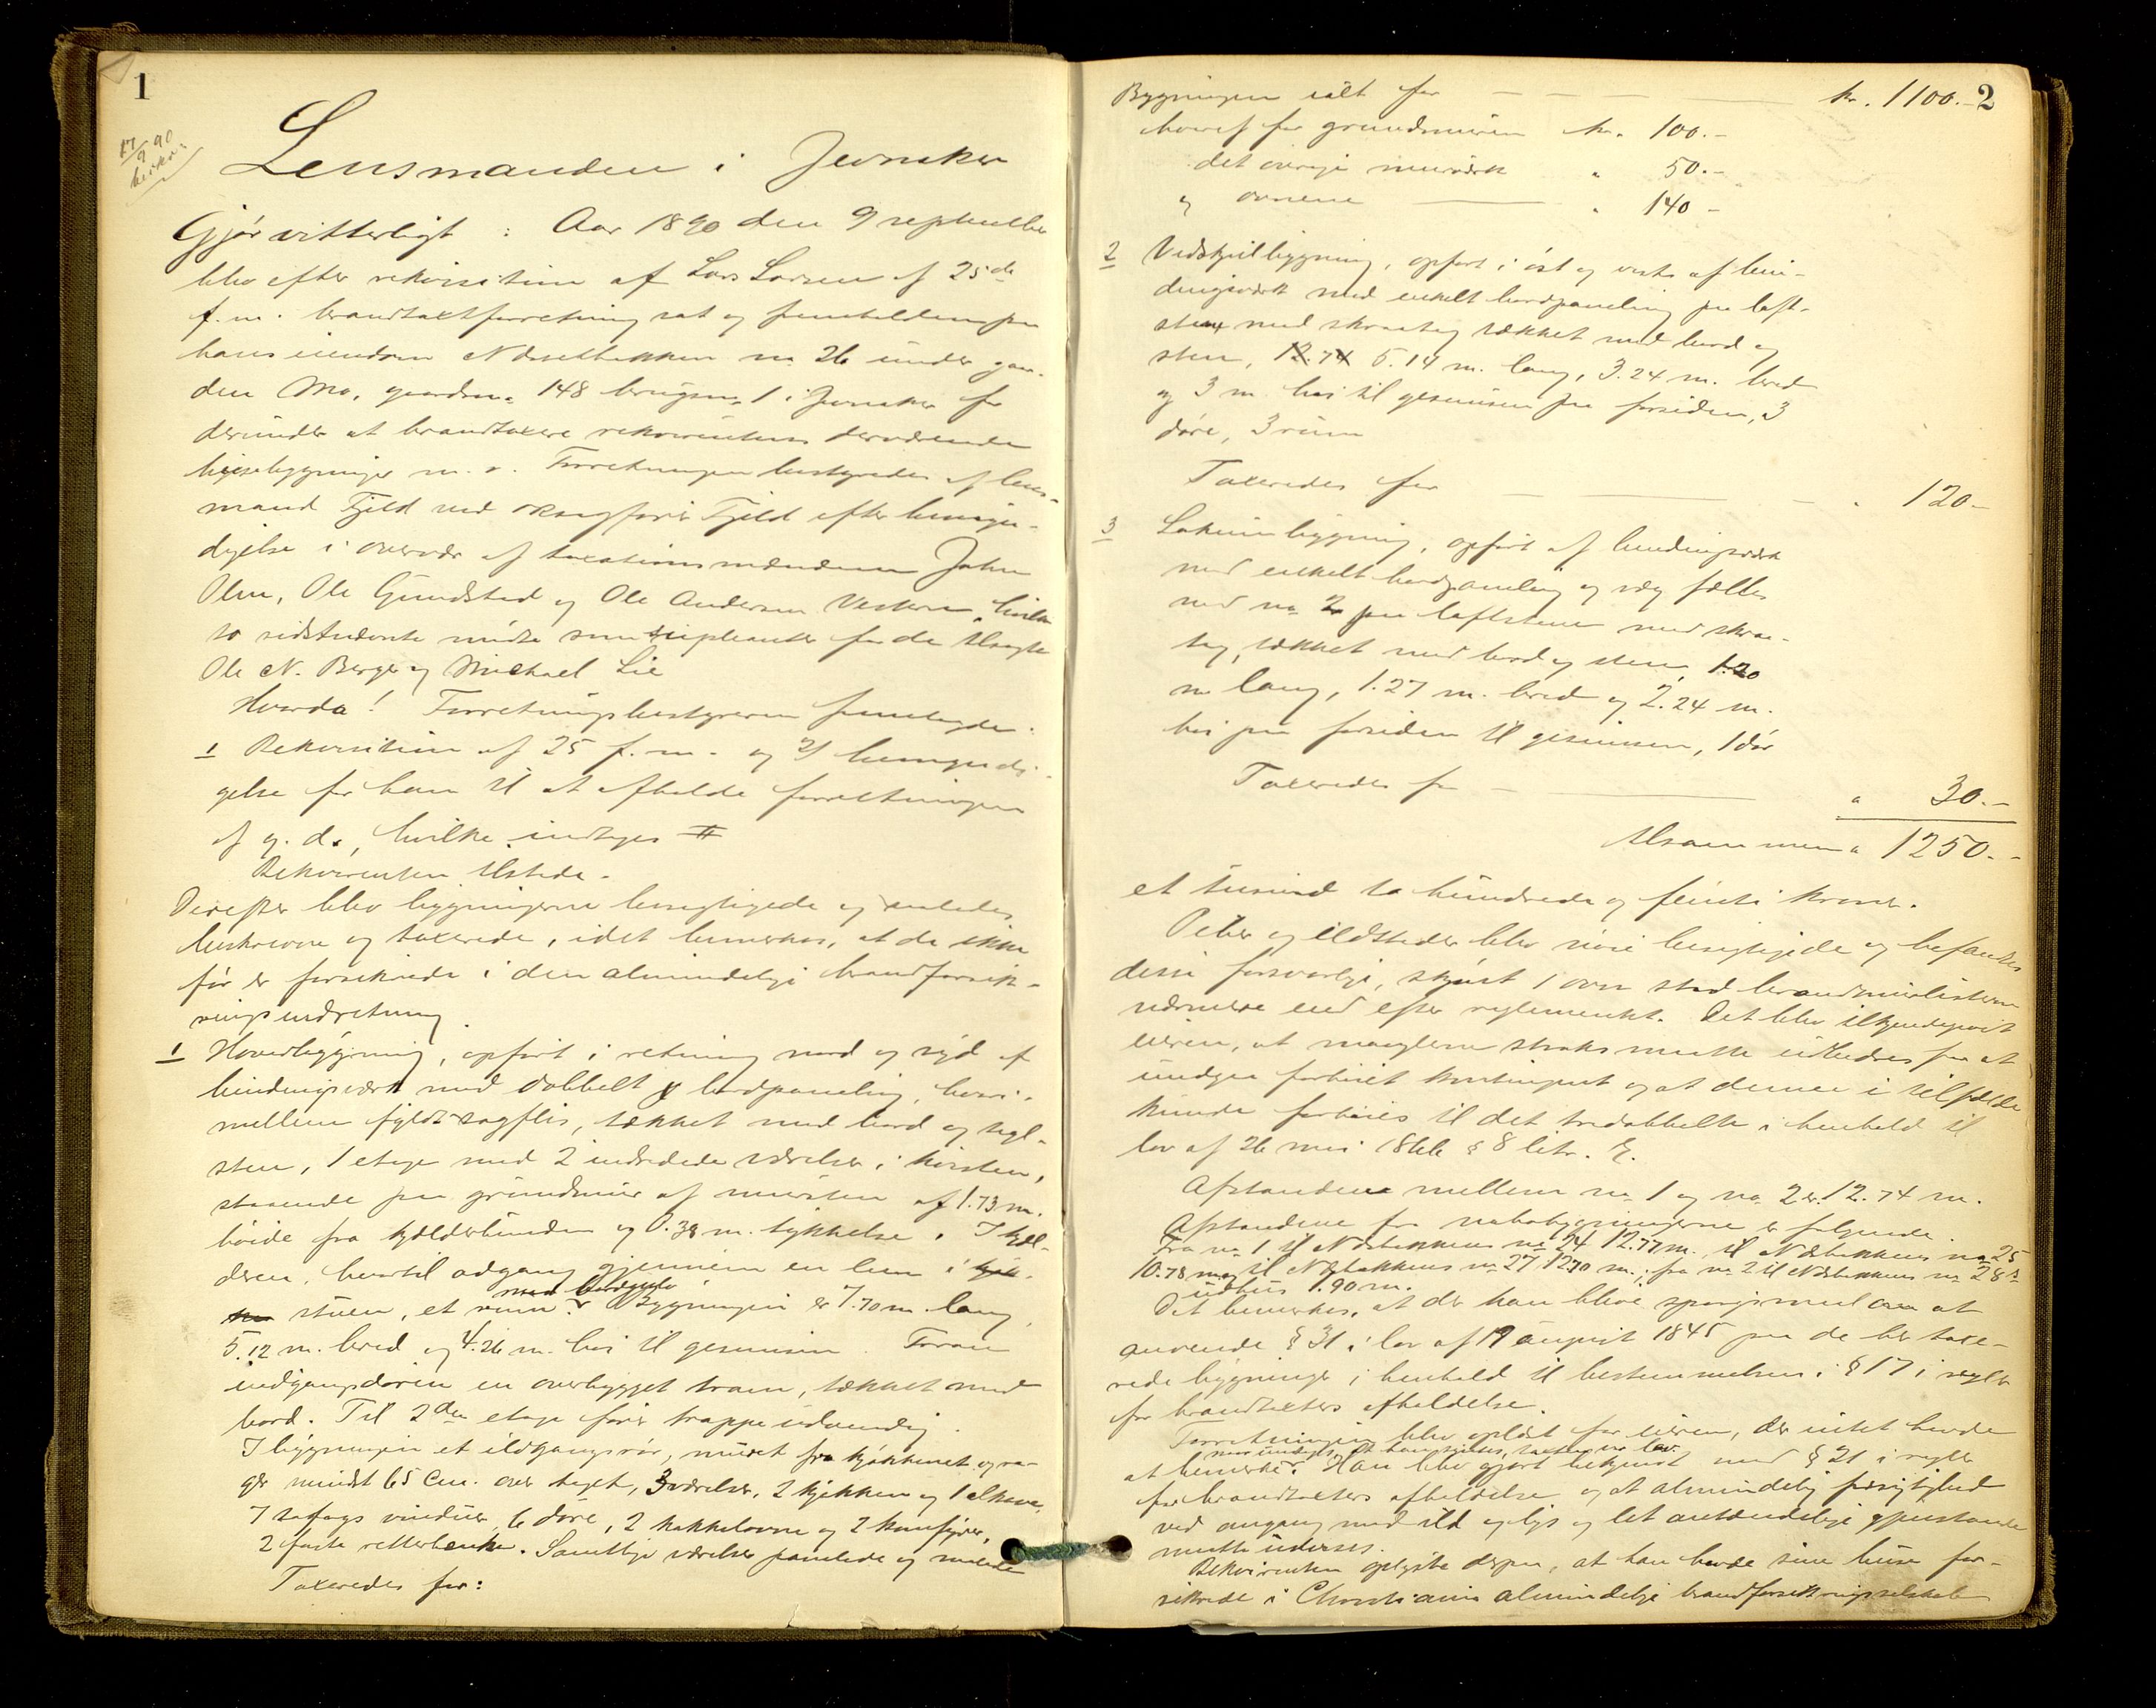 1
17/9 90
Lensmanden i Jevnaker
Gjør vitterligt: Aar 1890 den 9 september
blev efter rekvisition af Lars Larsen af 25de
f.m. brandtaxtforretning sat og fremholden paa
hans eiendom Næsetbakken no 26 under gaar-
den Mo, gaardsno 148 brugsno 1 i Jevnaker for
derunder at brandtaxere rekvirentens derværende
husebygninger m.v. Forretningen bestyredes af lens-
mand Fjeld ved sagfører Fjeld efter bemyn-
digelse i overvær af taxationsmændene John
Olsen, Ole Grindstad og Ole Andersen Vestern, hvilke
to sidstnævnte mødte som suppleanter for de tilsagte
Ole N. Berger og Michael Lie
Hvorda! Forretningsbestyreren fremlagde.
1 Rekvisition af 25 f.m. og 2) bemyndi-
gelse for ham til at afholde forretningen
af g.d., hvilke indtages #
Rekvirenten tilstede.
Derefter blev bygningerne besigtigede og saaledes
beskrevne og taxerede, idet bemerkes, at de ikke
før er forsikrede i den almindelige brandforsik-
ringsindretning.
1 Hovedbygning, opført i retning nord og syd af
bindingsverk med dobbelt bordpaneling, hvori-
mellem fyldt sagflis, tækket med bord og tegl-
sten, 1 etage med 2 indredede værelser i kvisten,
staaende paa grundmur af mursten af 1.73 m.
høide fra kjelderbunden og 0.38 m. tykkelse. I kjæl-
deren, hvortil adgang gjennem en lem i
stuen, et rum med bordgulv. Bygningen er 7.70 m. lang,
5.12 m. bred og 4.26 m. høi til gesimsen. Foran
indgangsdøren en overbygget tram, tækket med
bord. Til 2den etage fører trappe udvendig.
I bygningen et ildgangsrør, muret fra kjøkkenet og ra-
ger mindst 65 Cm. over taget, 3 værelser, 2 kjøkken og 1 alkove,
7 tofags vinduer, 6 døre, 2 kakkelovne og 2 komfyrer,
2 faste retterbenke. Samtlige værelser panelede og malede
Taxeredes for:
2
Bygningen ialt for — — — kr. 1100.-
hvoraf for grundmuren kr. 100.-
det øvrige murværk " 50.-
og ovnene — " 140-
2 Vedskjulbygning, opført i øst og vest af bin-
dingsverk med enkelt bordpaneling paa løft-
sten med skraatag tækket med bord og
sten, 12.74 5.14 m. lang, 3.24 m. bred
og 3 m. høi til gesimsen paa forsiden, 3
døre, 3 rum
Taxeredes for — — — " 120-
3 Lokumbygning, opført af bindingsverk
med enkelt bordpaneling og væg fælles
med no 2 paa løftstene med skraa-
tag, tækket med bord og sten, 1.20
m lang, 1.27 m. bred og 2.24 m.
høi paa forsiden til gesimsen, 1 dør
Taxeredes for — — " 30.-
Tilsammen " 1250.-
et tusind to hundrede og femti kroner.
Peber og ildsteder blev nøie besigtigede og befandtes
disse forsvarlige, skjønt 1 ovn stod brandmurlisterne
nærmere end efter reglementet. Det blev tilkjendegivet
eieren, at manglerne straks maatte udbedres for at
undgaa forhøiet kontingent og at denne i tilfælde
kunde forhøies til det tredobbelte i henhold til
lov af 26 mai 1866 § 8 litr. E.
Afstandene mellem no 1 og no 2 er 12.74 m.
Afstandene fra nabobygningerne er følgende.
Fra no 1 til Næsbakkens no 24 12.77 m. til Næsbakkens no 25
10.78 m og til Næsbakkens no 27 12.70 m., fra no 2 til Næsbakkens no 28s
udhus 1.90 m.
Det bemerkes, at der kan blive spørgsmaal om at
anvende § 31 i lov af 19 august 1845 paa de her taxe-
rede bygninger i henhold til bestemmelsen i § 17 i regler
for brandtaxters afholdelse.
Forretningen blev oplæst for eieren, der intet havde
at bemerke. Han blev gjort bekjendt med § 21 i regler
for brandtaxters afholdelse og at almindelig forsigtighed
ved omgang med ild og lys og let antændelige gjenstande
maatte udvises.
Rekvirenten oplyste derpaa, at han havde sine huse for-
sikrede i Christiania almindelige brandforsikringsselskab